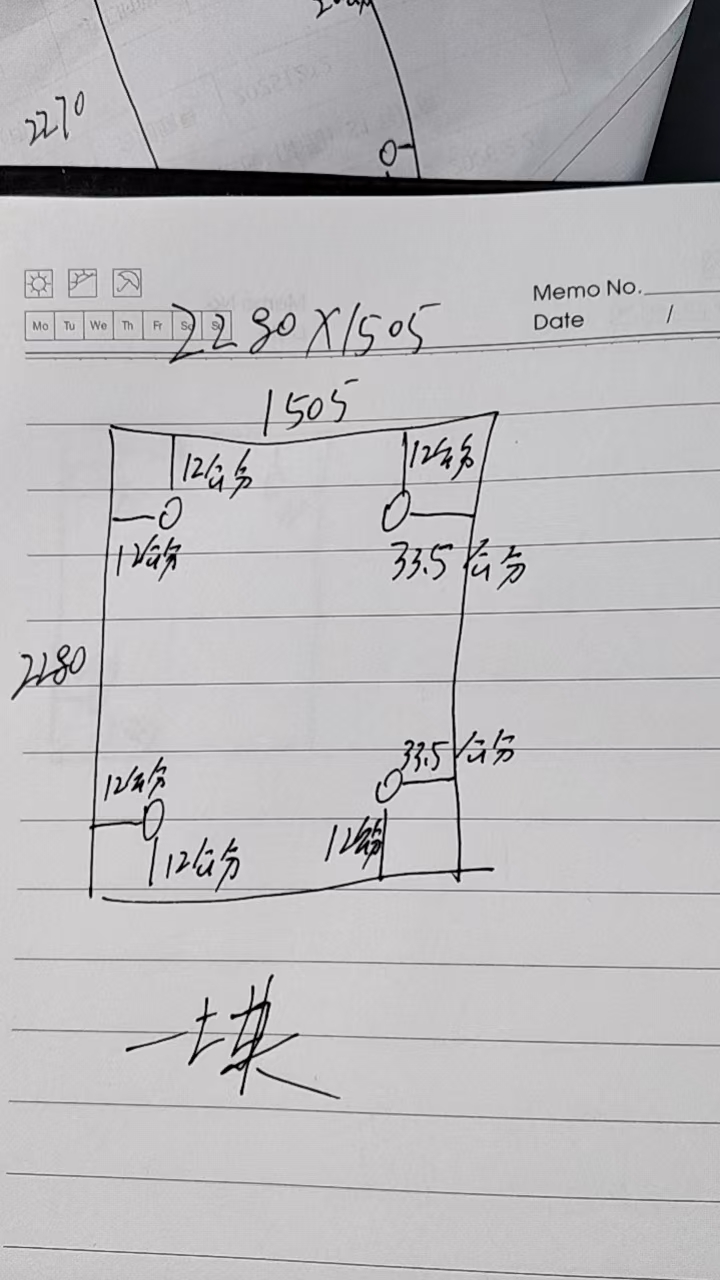 2270
Memo No.
Date /
Mo Tu We Th Fr Sa Su
2280X1505
1505
12公分
12公分
12公分
33.5公分
2280
33.5公分
12公分
12公分
12公分
一块